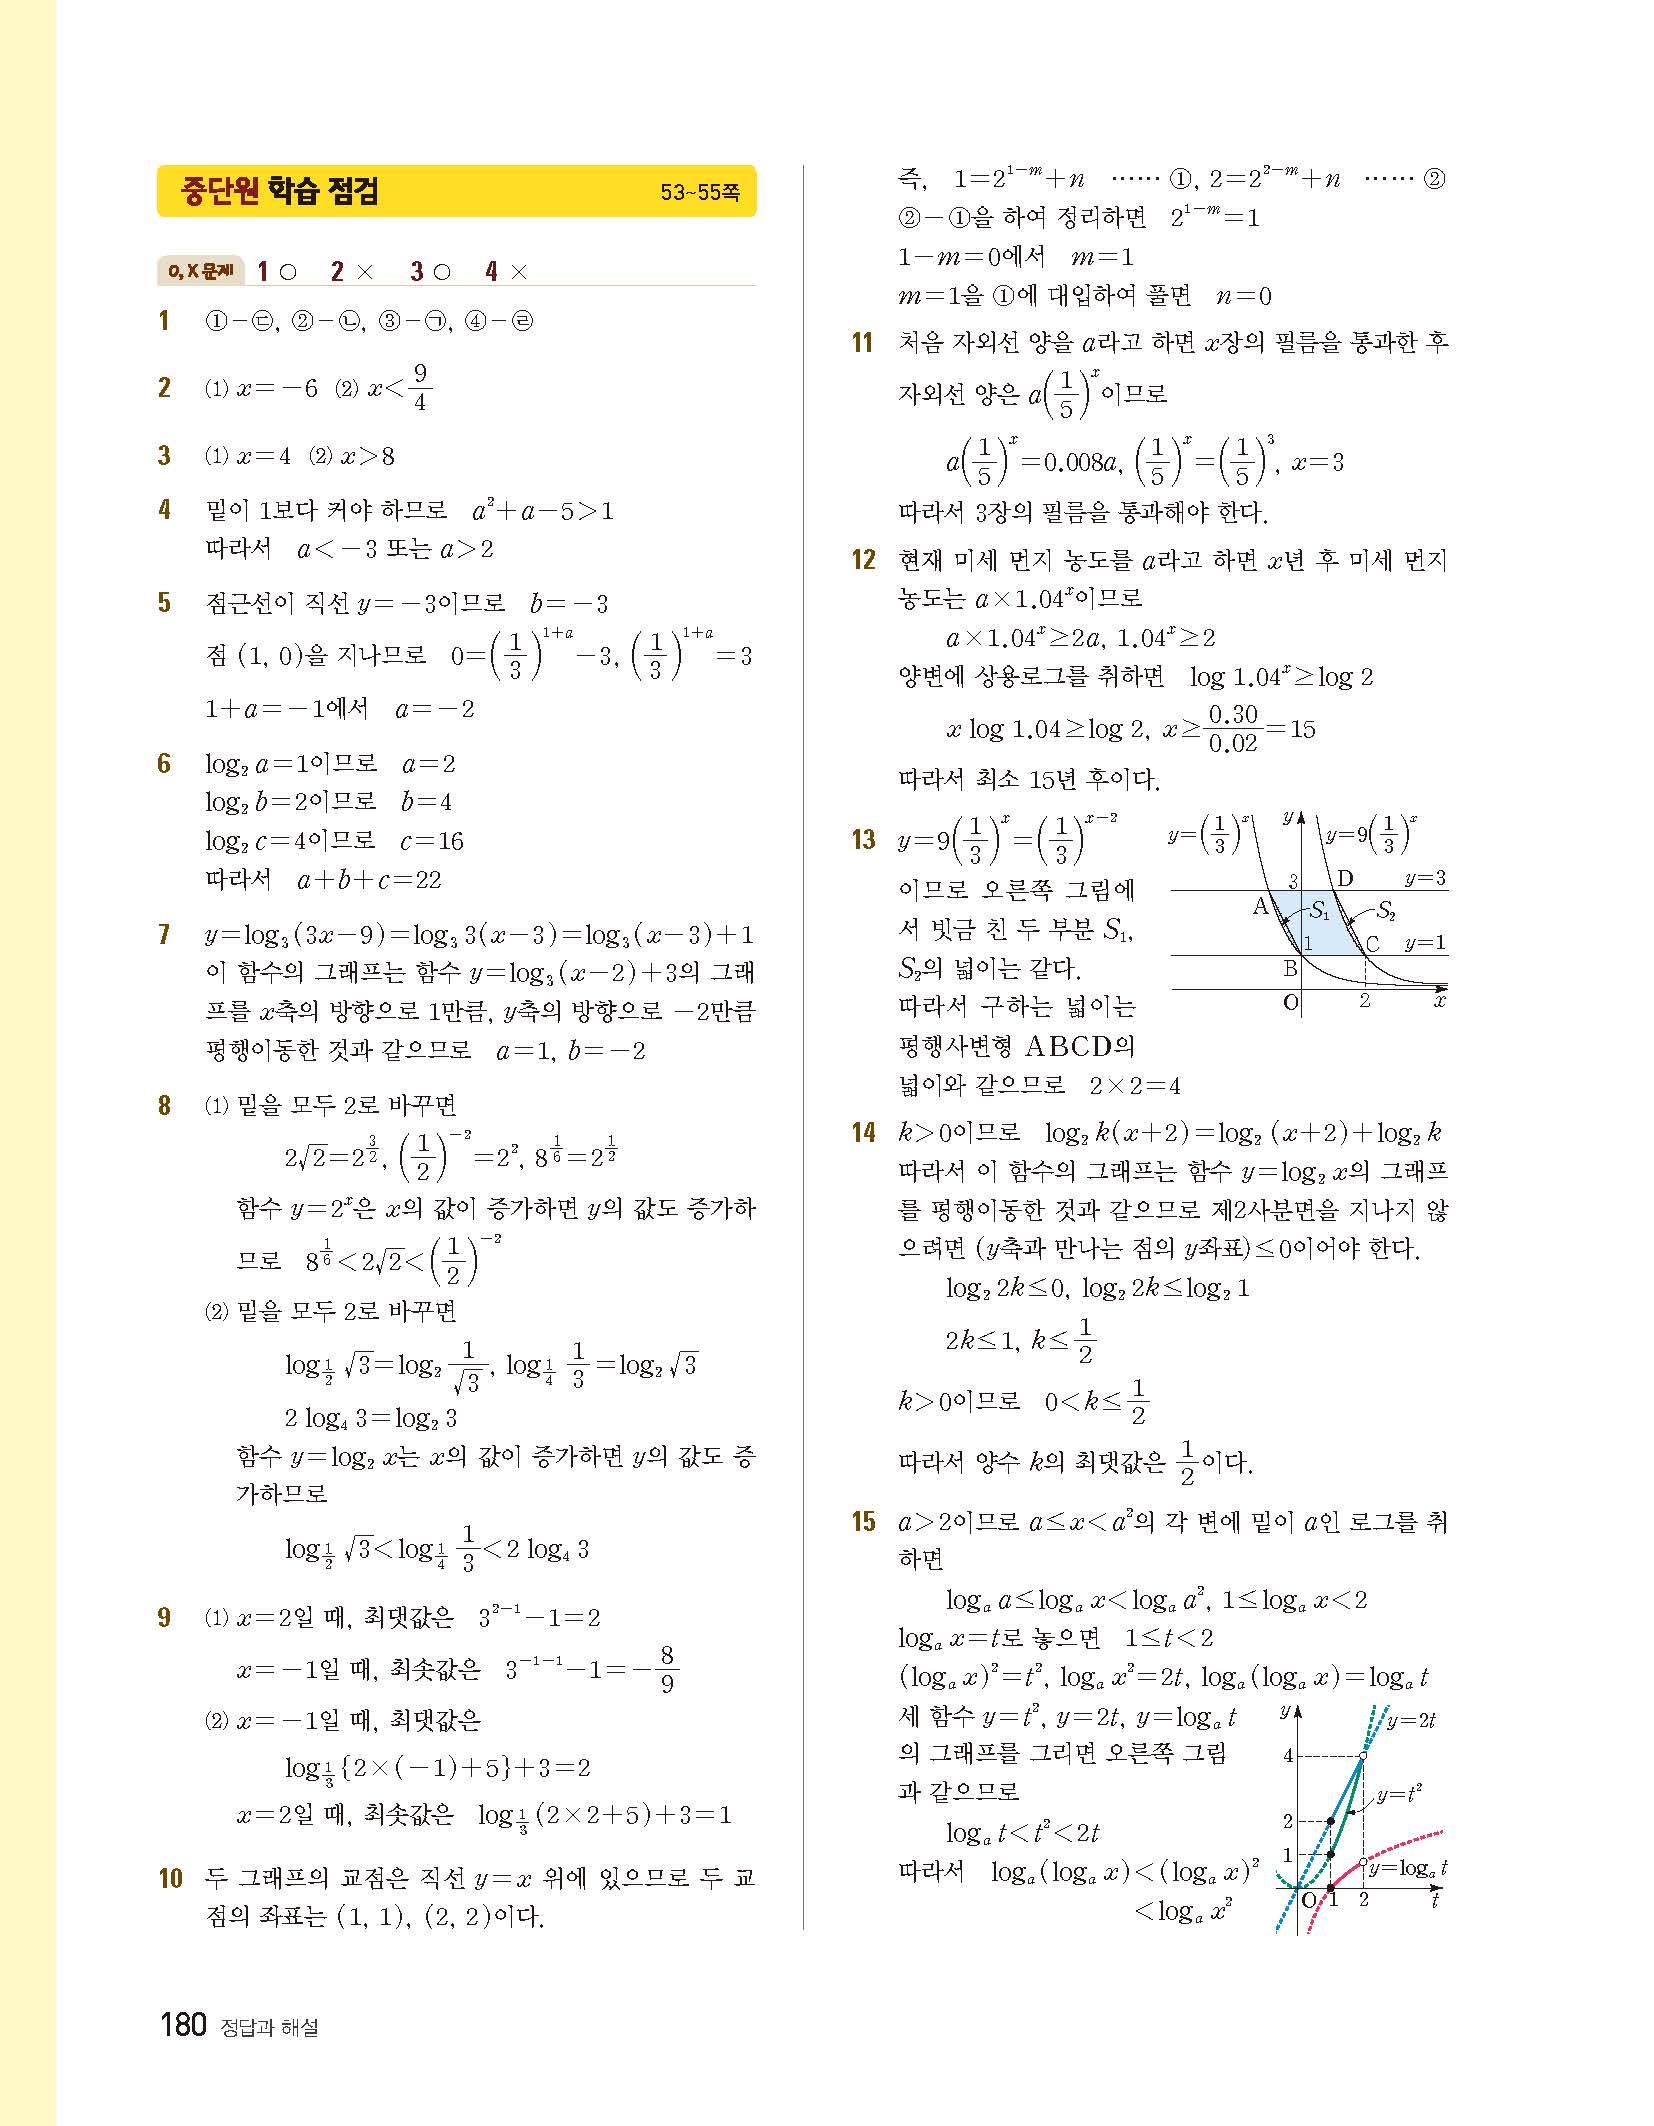 중단원 학습 점검 53~55쪽
O, X 문제 1 ○ 2 × 3 ○ 4 ×
1 ①-㉢, ②-㉡, ③-㉠, ④-㉣
2 ⑴ x=-6 ⑵ x<9/4
3 ⑴ x=4 ⑵ x>8
4 밑이 1보다 커야 하므로 a²+a-5>1
따라서 a<-3 또는 a>2
5 점근선이 직선 y=-3이므로 b=-3
점 (1, 0)을 지나므로 0=(1/3)^(1+a)-3, (1/3)^(1+a)=3
1+a=-1에서 a=-2
6 log₂ a=1이므로 a=2
log₂ b=2이므로 b=4
log₂ c=4이므로 c=16
따라서 a+b+c=22
7 y=log₃(3x-9)=log₃ 3(x-3)=log₃(x-3)+1
이 함수의 그래프는 함수 y=log₃(x-2)+3의 그래
프를 x축의 방향으로 1만큼, y축의 방향으로 -2만큼
평행이동한 것과 같으므로 a=1, b=-2
8 ⑴ 밑을 모두 2로 바꾸면
2√2=2^(3/2), (1/2)^(-2)=2², 8^(1/6)=2^(1/2)
함수 y=2^x은 x의 값이 증가하면 y의 값도 증가하
므로 8^(1/6)<2√2<(1/2)^(-2)
⑵ 밑을 모두 2로 바꾸면
log_(1/2) √3=log₂ 1/√3, log_(1/4) 1/3=log₂ √3
2 log₄ 3=log₂ 3
함수 y=log₂ x는 x의 값이 증가하면 y의 값도 증
가하므로
log_(1/2) √3<log_(1/4) 1/3<2 log₄ 3
9 ⑴ x=2일 때, 최댓값은 3^(2-1)-1=2
x=-1일 때, 최솟값은 3^(-1-1)-1=-8/9
⑵ x=-1일 때, 최댓값은
log_(1/3){2×(-1)+5}+3=2
x=2일 때, 최솟값은 log_(1/3)(2×2+5)+3=1
10 두 그래프의 교점은 직선 y=x 위에 있으므로 두 교
점의 좌표는 (1, 1), (2, 2)이다.
즉, 1=2^(1-m)+n …… ①, 2=2^(2-m)+n …… ②
②-①을 하여 정리하면 2^(1-m)=1
1-m=0에서 m=1
m=1을 ①에 대입하여 풀면 n=0
11 처음 자외선 양을 a라고 하면 x장의 필름을 통과한 후
자외선 양은 a(1/5)^x이므로
a(1/5)^x=0.008a, (1/5)^x=(1/5)³, x=3
따라서 3장의 필름을 통과해야 한다.
12 현재 미세 먼지 농도를 a라고 하면 x년 후 미세 먼지
농도는 a×1.04^x이므로
a×1.04^x≥2a, 1.04^x≥2
양변에 상용로그를 취하면 log 1.04^x≥log 2
x log 1.04≥log 2, x≥0.30/0.02=15
따라서 최소 15년 후이다.
13 y=9(1/3)^x=(1/3)^(x-2)
이므로 오른쪽 그림에
서 빗금 친 두 부분 S₁,
S₂의 넓이는 같다.
따라서 구하는 넓이는
평행사변형 ABCD의
넓이와 같으므로 2×2=4
y=(1/3)^x y y=9(1/3)^x
3 D y=3
A S₁ S₂
1 C y=1
B
O 2 x
14 k>0이므로 log₂ k(x+2)=log₂ (x+2)+log₂ k
따라서 이 함수의 그래프는 함수 y=log₂ x의 그래프
를 평행이동한 것과 같으므로 제2사분면을 지나지 않
으려면 (y축과 만나는 점의 y좌표)≤0이어야 한다.
log₂ 2k≤0, log₂ 2k≤log₂ 1
2k≤1, k≤1/2
k>0이므로 0<k≤1/2
따라서 양수 k의 최댓값은 1/2이다.
15 a>2이므로 a≤x<a²의 각 변에 밑이 a인 로그를 취
하면
logₐ a≤logₐ x<logₐ a², 1≤logₐ x<2
logₐ x=t로 놓으면 1≤t<2
(logₐ x)²=t², logₐ x²=2t, logₐ(logₐ x)=logₐ t
세 함수 y=t², y=2t, y=logₐ t
의 그래프를 그리면 오른쪽 그림
과 같으므로
logₐ t<t²<2t
따라서 logₐ(logₐ x)<(logₐ x)²
<logₐ x²
y y=2t
4
y=t²
2
1
y=logₐ t
O 1 2 t
180 정답과 해설